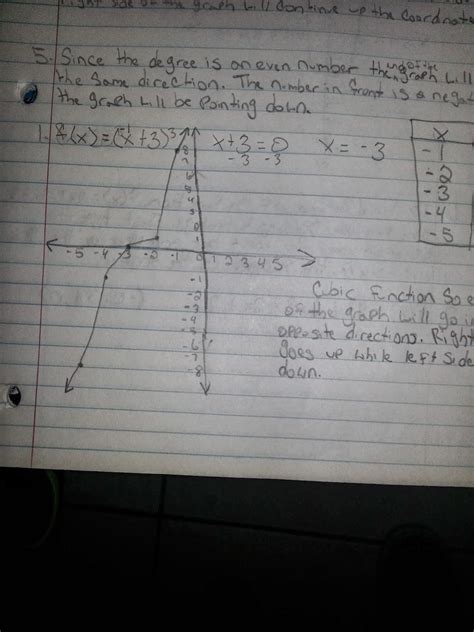 right side of the graph will continue up the coordinate
5. Since the degree is an even number the end of the graph will
the same direction. The number in front is a negat
the graph will be pointing down.
f(x) = (x+3)3
x+3=0
-3 -3
x = -3
x
-1
-2
-3
-4
-5
8
7
6
5
4
3
2
1
-5 -4 -3 -2 -1 0 1 2 3 4 5
-1
-2
-3
-4
-5
-6
-7
-8
Cubic function So
of the graph will go i
opposite directions. Right
goes up while left side
down.